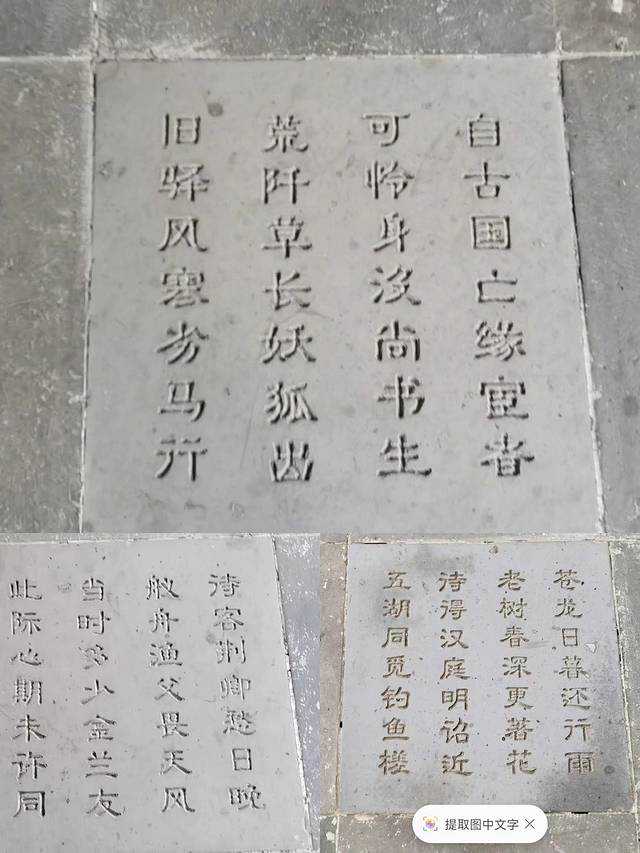 自古国亡缘宦者
可怜身没尚书生
荒阡草长妖狐出
旧驿风寒劣马行
待客荆卿愁日晚
舣舟渔父畏天风
当时多少金兰友
此际心期未许同
苍龙日暮还行雨
老树春深更著花
待得汉庭明诏近
五湖同觅钓鱼槎
提取图中文字